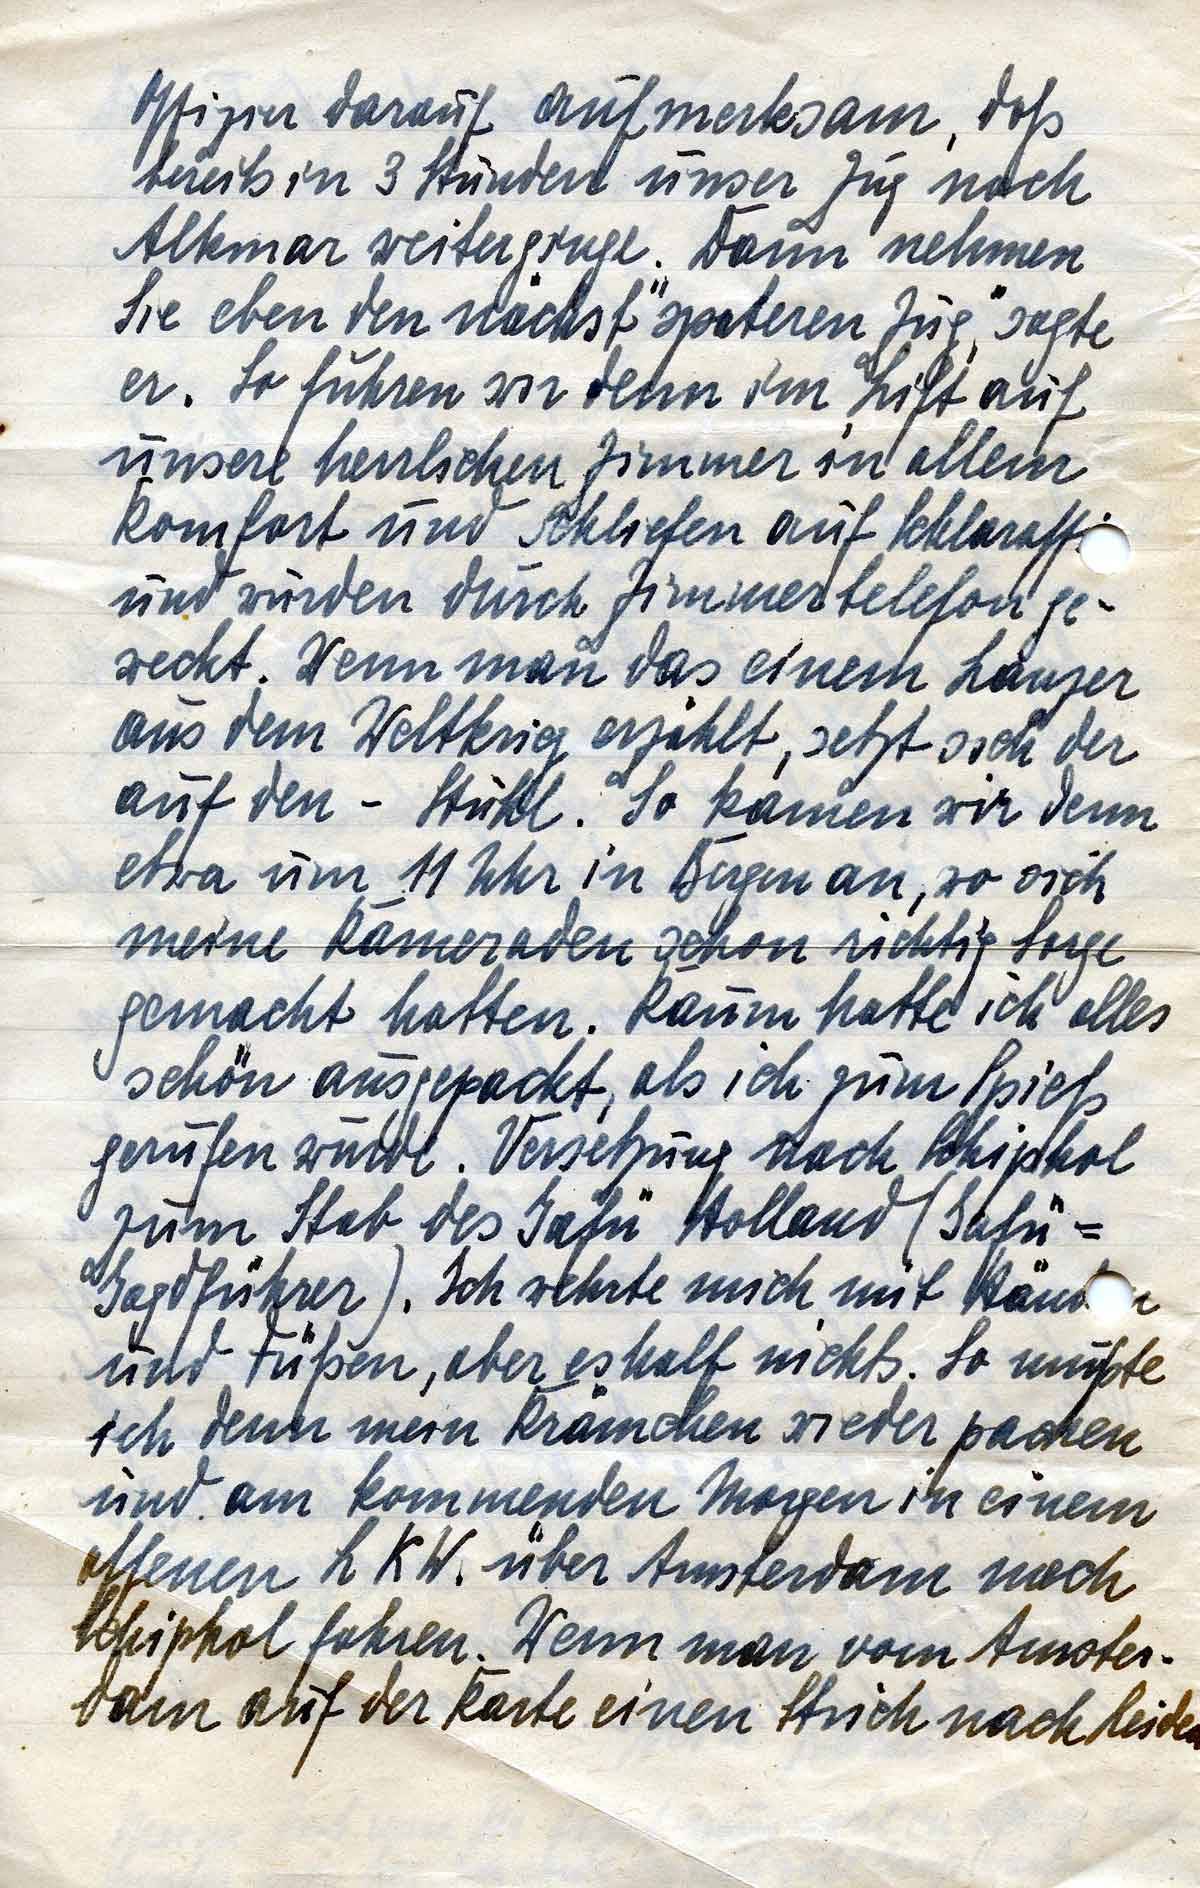 Offizier darauf aufmerksam, daß
bereits in 3 Stunden unser Zug nach
Alkmar weitergінge. Dann nehmen
Sie eben den nächst" späteren Zug," sagte
er. So fuhren wir denn im Lift auf
unsere herrlichen Zimmer in allem
Komfort und schliefen auf Schlaraffi
und wurden durch Zimmertelefon ge-
weckt. Wenn man das einem Lanzer
aus dem Weltkrieg erzählt, setzt sich der
auf den - Stuhl. So kamen wir denn
etwa um 11 Uhr in Bergen an, wo sich
meine Kameraden schon richtig Sorge
gemacht hatten. Kaum hatte ich alles
schön ausgepackt, als ich zum Spieß
gerufen wurde. Versetzung nach Schiphol
zum Stab des Jafü Holland (Jafü =
Jagdführer). Ich wehrte mich mit Händen
und Füßen, aber es half nichts. So mußte
ich denn mein Krämchen wieder packen
und am kommenden Morgen in einem
offenen LKW. über Amsterdam nach
Schiphol fahren. Wenn man vom Amster-
dam auf der Karte einen Strich nach Leiden